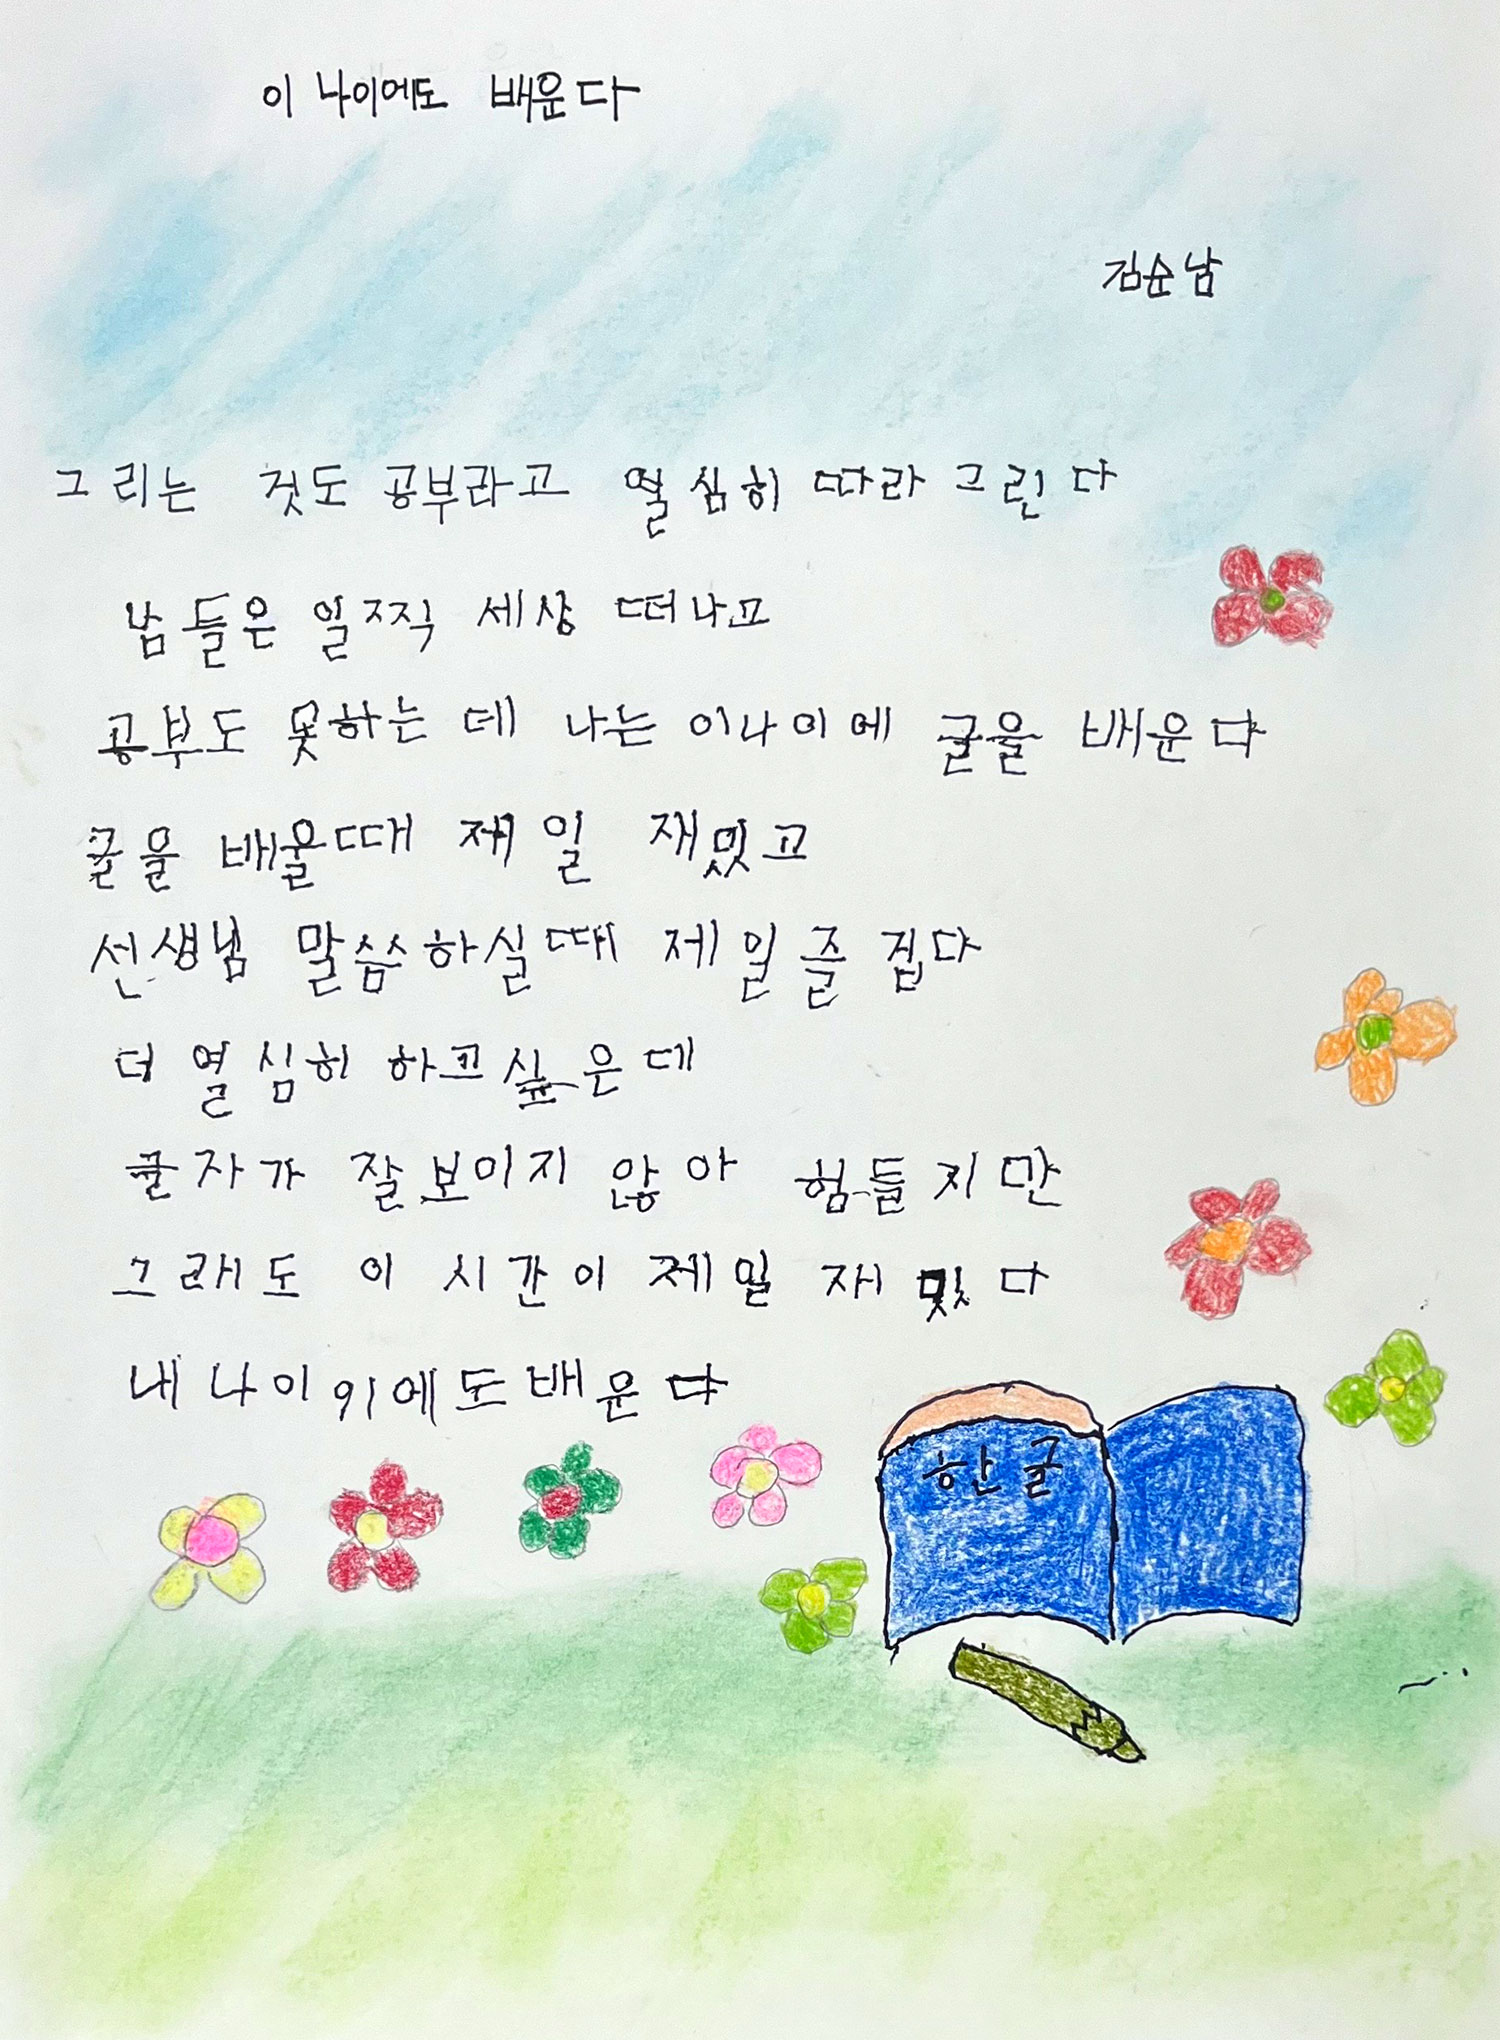 이 나이에도 배운다
김순남
그리는 것도 공부라고 열심히 따라 그린다
남들은 일찍 세상 떠나고
공부도 못하는데 나는 이나이에 글을 배운다
글을 배울때 제일 재밌고
선생님 말씀하실때 제일 즐겁다
더 열심히 하고싶은데
글자가 잘보이지 않아 힘들지만
그래도 이 시간이 제일 재밌다
내 나이 91에도 배운다
한글